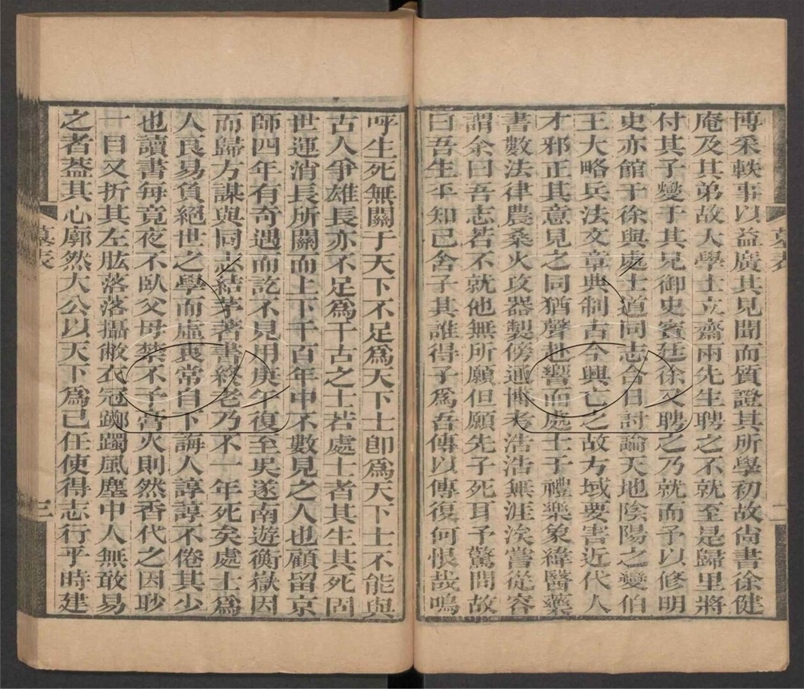 博采軼事以益廣其見聞而質證其所學初故尚書徐健
庵及其弟故大學士立齋兩先生聘之不就至是歸里將
付其子燮于其兄御史賓廷徐又聘之乃就而予以修明
史亦館于徐與處士道同志合日討論天地陰陽之變伯
王大略兵法文章典制古今興亡之故方域要害近代人
才邪正其意見之同猶聲赴響而處士于禮樂象緯醫藥
書數法律農桑火攻器製傍通博考浩浩無涯涘嘗從容
謂余曰吾志若不就他無所願但願先子死耳予驚問故
曰吾生平知已舍子其誰得子爲吾傳以傳復何恨哉嗚
墓表
二
呼生死無關于天下不足爲天下士卽爲天下士不能與
古人爭雄長亦不足爲千古之士若處士者其生其死固
世運消長所關而上下千百年中不數見之人也顧留京
師四年有奇遇而訖不見用庚午復至吳遂南遊衡嶽因
而歸方謀與同志結茅著書終老乃不一年死矣處士爲
人良易負絕世之學而虛衷常自下誨人諄諄不倦其少
也讀書每竟夜不臥父母禁不予膏火則然香代之因眇
一目又折其左肱落落攝敝衣冠躑躅風塵中人無敢易
之者蓋其心廓然大公以天下爲己任使得志行乎時建
墓表
三